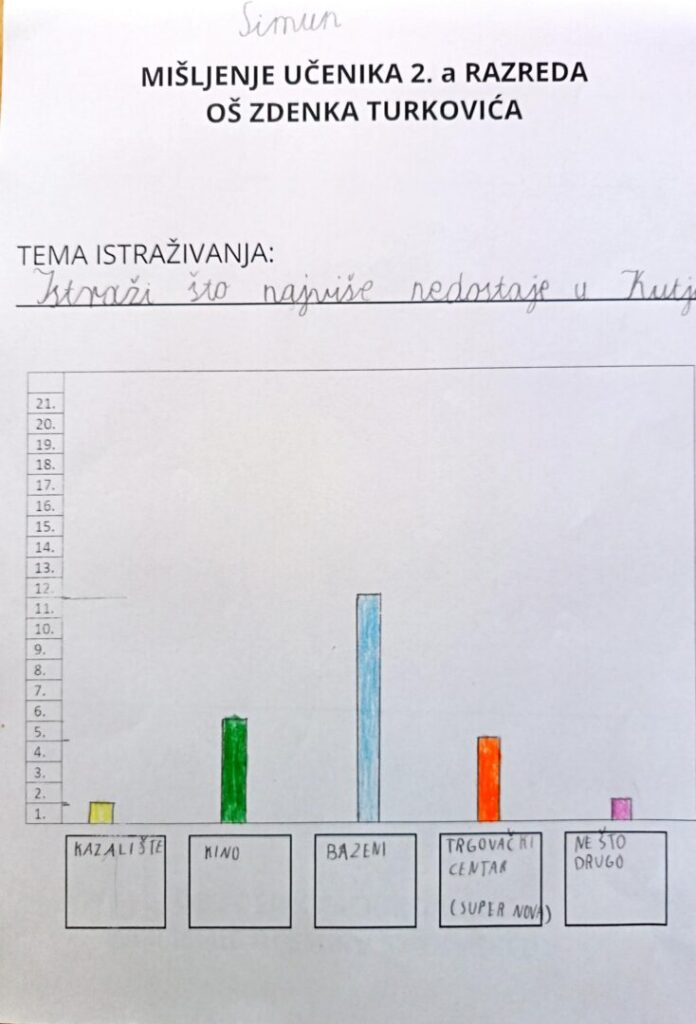 Šimun
MIŠLJENJE UČENIKA 2. a RAZREDA
OŠ ZDENKA TURKOVIĆA
TEMA ISTRAŽIVANJA:
Istraži što najviše nedostaje u
21.
20.
19.
18.
17.
16.
15.
14.
13.
12.
11.
10.
9.
8.
7.
6.
5.
4.
3.
2.
1.
KAZALIŠTE
KINO
BAZENI
TRGOVAČKI
CENTAR
(SUPER NOVA)
NE ŠTO
DRUGO